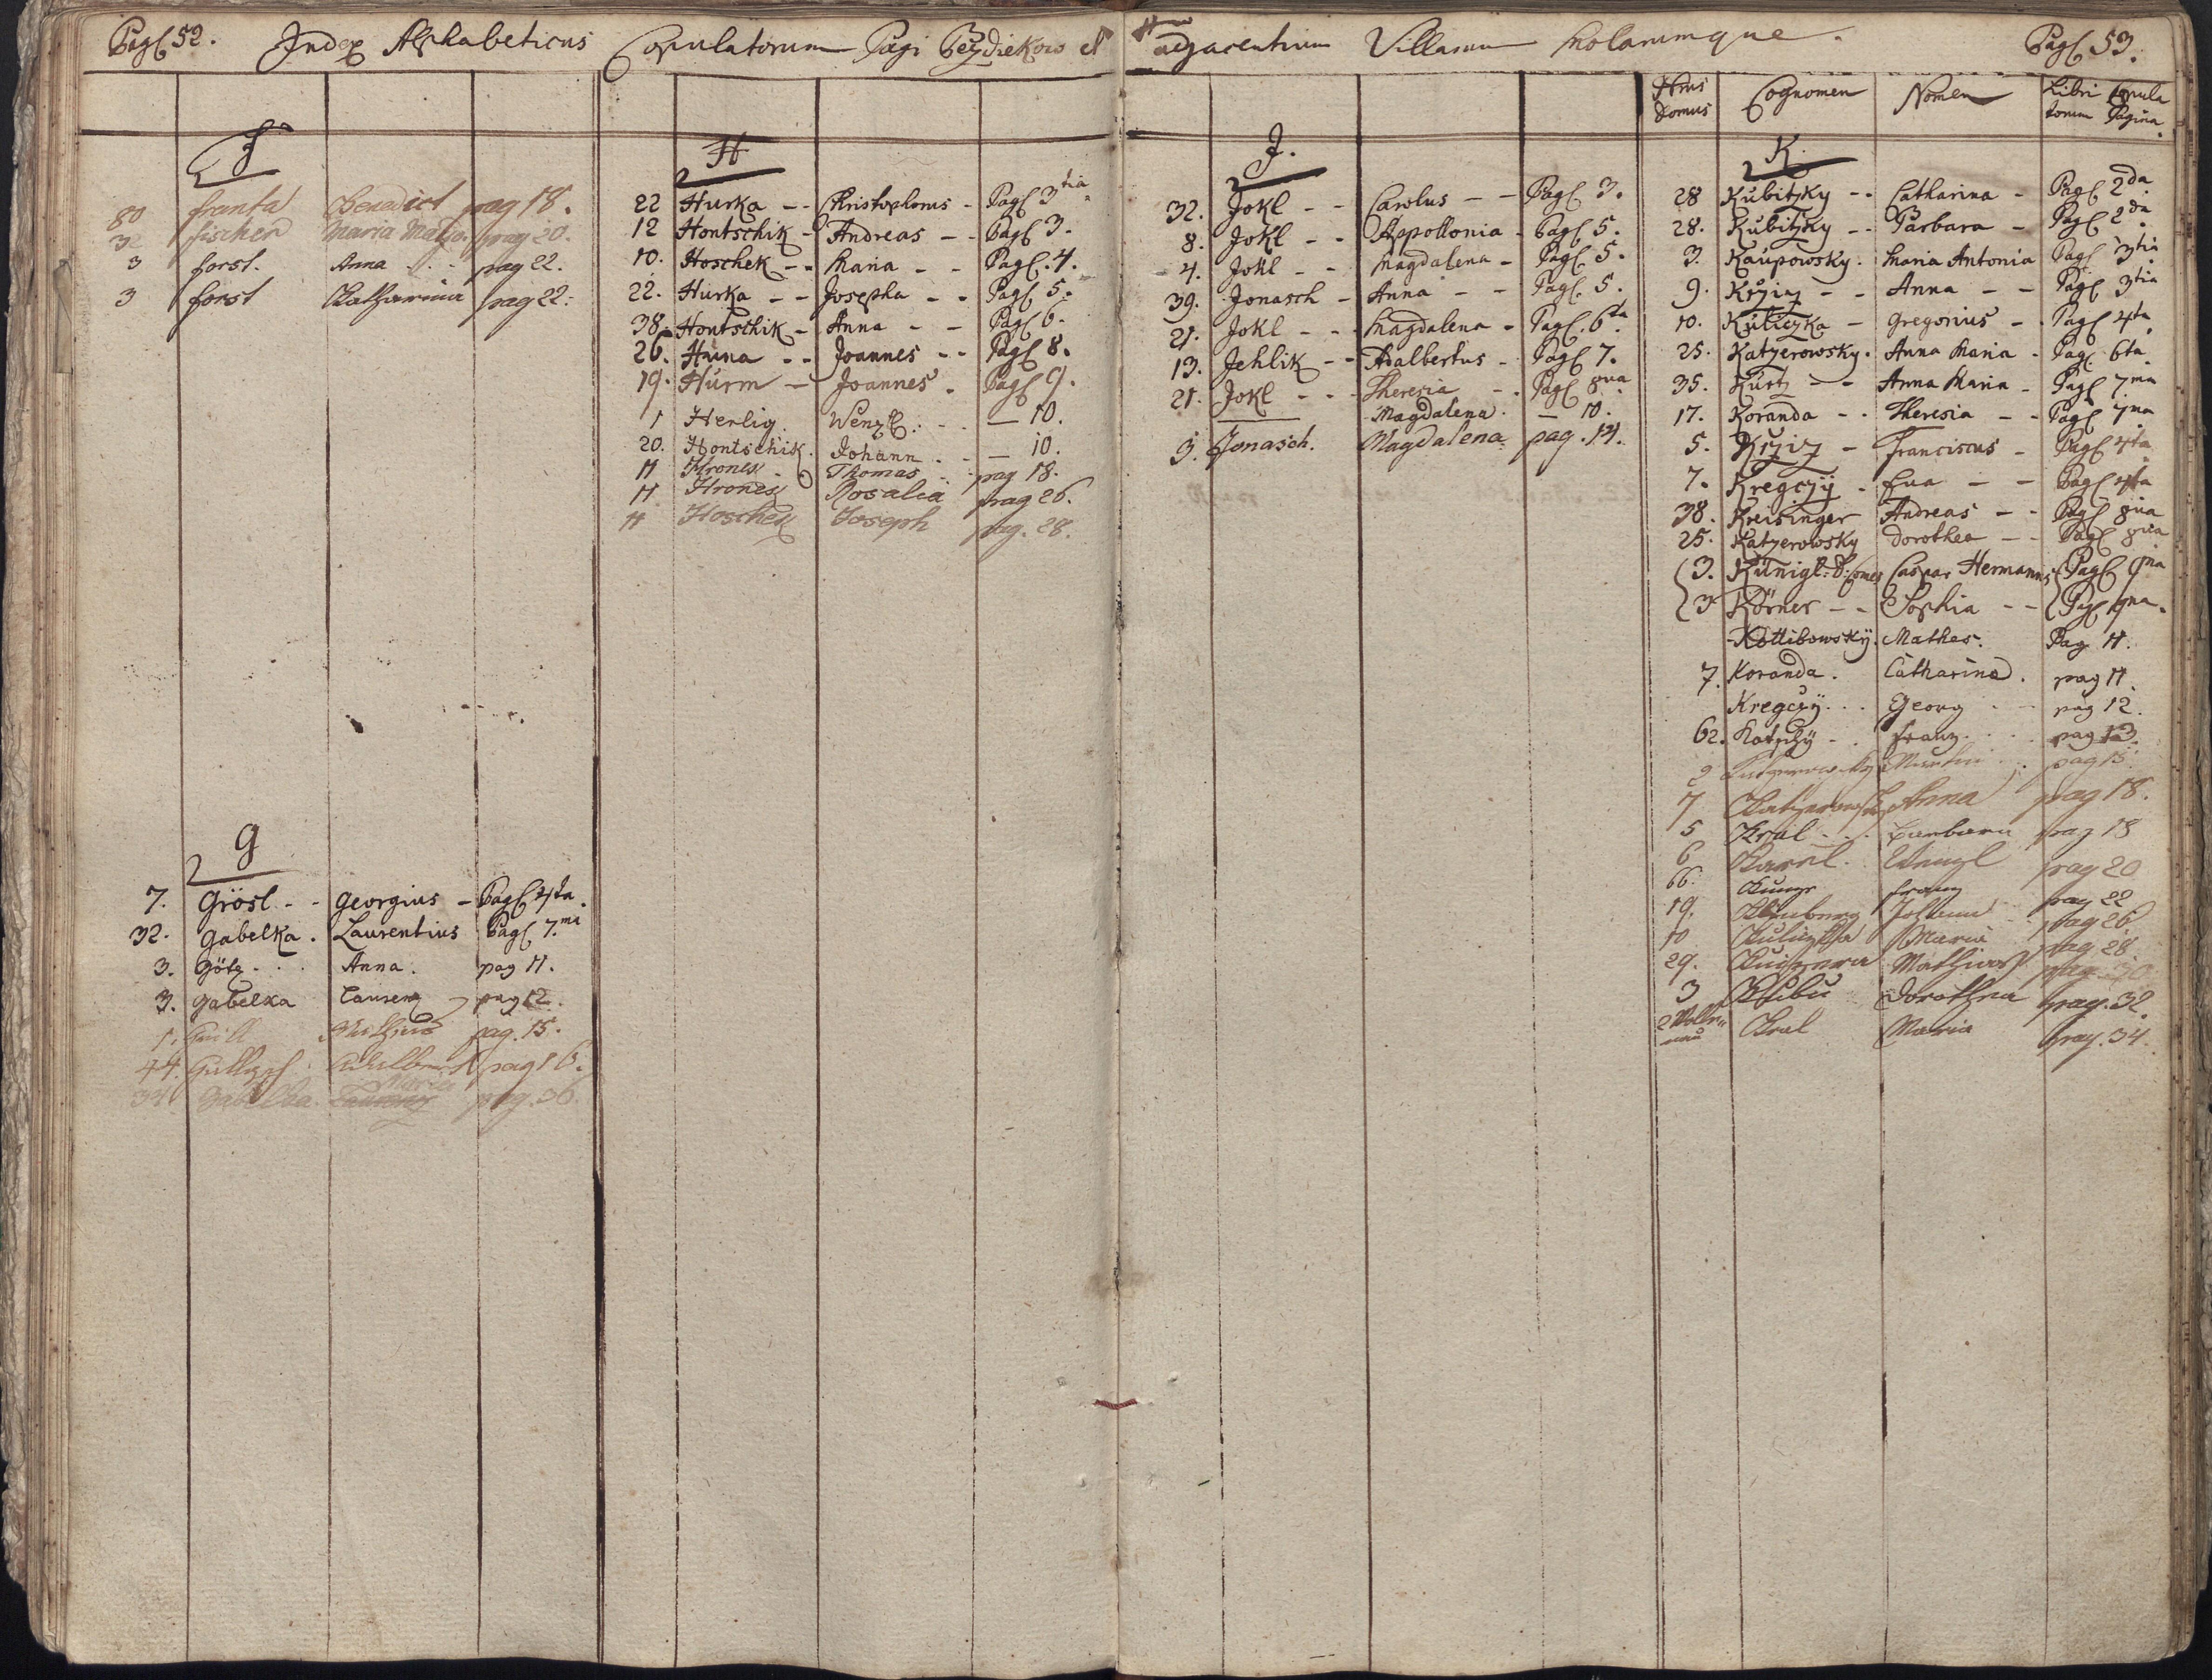 Pag 52. Index Alphabeticus Copulatorum Pagi Bezdiekow et
F
80 Franta Benedict pag 18.
32 Fischer Maria pag 20.
3 Forst. Anna pag 22.
3 Forst Katharina pag 22.
G
7. Grösl - - Georgius - Pag 4ta.
32. Gabelka. Laurentius Pag 7.ma
3. Götz . . . Anna. pag 11.
3. Gabelka Laurenz pag 12.
1. Mathias pag. 15.
44. Adalbert pag 16.
34 Gabelka. Maria pag. 36.
H
22 Hurka - - Christophorus - Pag 3tia
12 Hontschik - Andreas - - Pag 3.
10. Hoschek - - Maria - - Pag. 4.
22. Hurka - - Josepha - - Pag 5.
38. Hontschik - Anna - - Pag 6.
26. Huna - - Joannes - - Pag 8.
19. Hurm - Joannes - Pag 9.
1 Herlig. Wenzl: - - — 10.
20. Hontschik. Johann. - — 10.
11 Hronek - Thomas pag 18.
11 Hronek Rosalia pag 26.
11 Hoschek Joseph pag. 28.
adjacentium Villarum Molarumque. Pag 53.
J.
32. Jokl - - Carolus - - Pag 3.
8. Jokl - - Appollonia - Pag 5.
4. Jokl - - Magdalena - Pag. 5.
39. Jonasch - Anna - - Pag. 5.
21. Jokl - - - Magdalena - Pag. 6ta
13. Jehlik - - Adalbertus - Pag 7.
21. Jokl - - - Theresia - - Pag 8va
— Magdalena. — 10.
3. Jonasch. Magdalena pag. 14.
Nrus Domus Cognomen Nomen Libri Copula
torum Pagina.
K.
28 Kubitzky - - Catharina - Pag 2da
28. Kubitzky - - Barbara - Pag 2da
3. Kaupowsky. Maria Antonia Pag 3tia
9. Krziz - - Anna - - Pag 3tia
10. Kuliczka - Gregorius - - Pag 4ta
25. Katzerowsky. Anna Maria - Pag 6ta
35. Kurtz - - Anna Maria - Pag 7ma
17. Koranda - - Theresia - - Pag 7ma
5. Krziz - Franciscus - Pag 4ta
7. Kregczy - Eva - - Pag 4ta
38. Kreisinger Andreas - - Pag 8va
25. Katzerowsky Dorothea - - Pag 8va
3. Künigl: S: Comes Caspar Hermannus Pag 9na
3. Körner - - Sophia - - Pag 9na.
Kottibowskÿ. Mathes. Pag 11.
7. Koranda. Catharina. pag 11.
Kregczÿ . . . Georg - - pag 12.
62. Franz. . . . pag 13.
2 Katzerowsky Martin pag 15.
7 Katzerowsky Anna pag 18.
5 Kral - - . Barbara pag 18
6 Karel. Wenzl pag 20
66. Franz pag 22
19. Johann pag 26
10 Kuliczka Maria pag 28.
29. Mathias pag 30.
3 Dorothea pag. 32.
2 Kral Maria pag. 34.